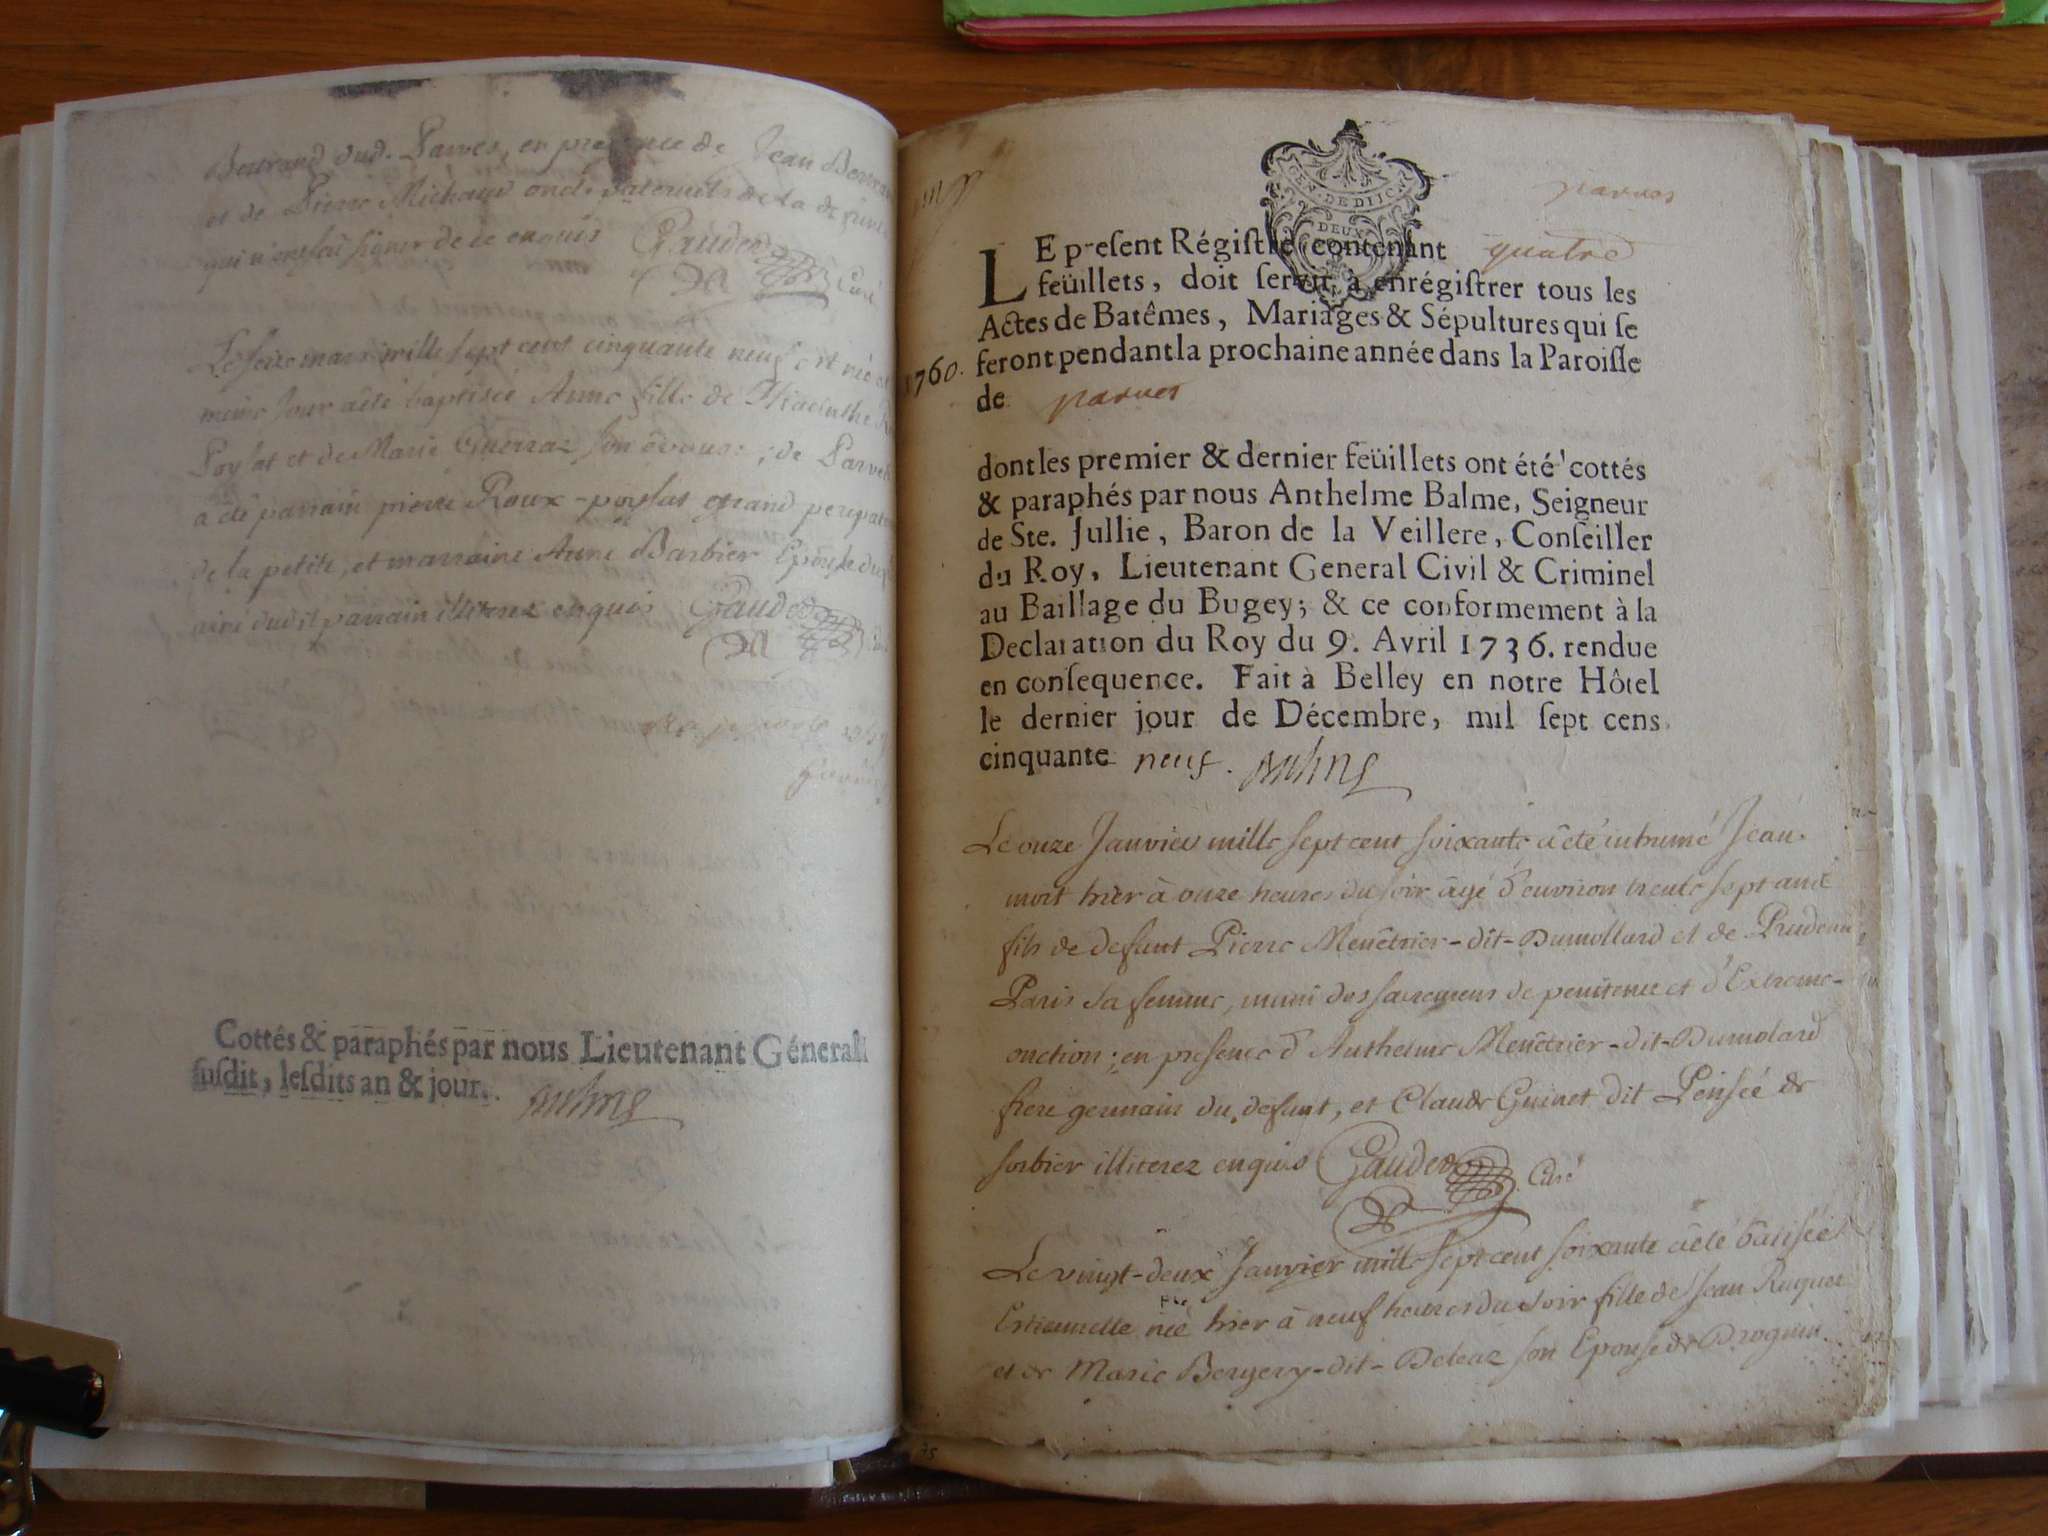 Bertrand dud. Parves, en presence de Jean
et de Pierre Michaud oncle paternels de la
qui n'ont sçu signer de ce enquis Gaudet Curé
Le seize mars mille sept cent cinquante neuf est née
meme jour a été baptisée Anne fille de Hiacinthe
Poysat et de Marie Guerraz son épouse, de Parves
a été parrain pierre Roux-poysat grand pere
de la petite, et marraine Anne Barbier Epouse
dudit parrain illiterez enquis Gaudet
Cottés & paraphés par nous Lieutenant Géneral
susdit, lesdits an & jour.
GEN. DE DIJON
DEUX
parves
LE present Régistre contenant quatre
feüillets, doit servir à enrégistrer tous les
Actes de Batêmes, Mariages & Sépultures qui se
1760. feront pendant la prochaine année dans la Paroisse
de parves
dont les premier & dernier feüillets ont été cottés
& paraphés par nous Anthelme Balme, Seigneur
de Ste. Jullie, Baron de la Veillere, Conseiller
du Roy, Lieutenant General Civil & Criminel
au Baillage du Bugey; & ce conformement à la
Declaration du Roy du 9. Avril 1736. rendue
en consequence. Fait à Belley en notre Hôtel
le dernier jour de Décembre, mil sept cens
cinquante neuf.
Le onze Janvier mille sept cent soixante a été inhumé Jean
mort hier à onze heures du soir âgé d'environ trente sept ans
fils de defunt Pierre Menêtrier-dit-Dumollard et de
Paris sa femme, muni des sacremens de penitence et d'Extreme-
onction; en presence d'Anthelme Menêtrier-dit-Dumolard
frere germain du defunt, et Claude Guinet dit Pensée de
sorbier illiterez enquis Gaudet Curé
Le vingt-deux Janvier mille sept cent soixante a été bâtisée
Estiennette née hier à neuf heures du soir fille de Jean Ruquet
et de Marie Bergery-dit-Deleaz son Epouse de Drognin.
75